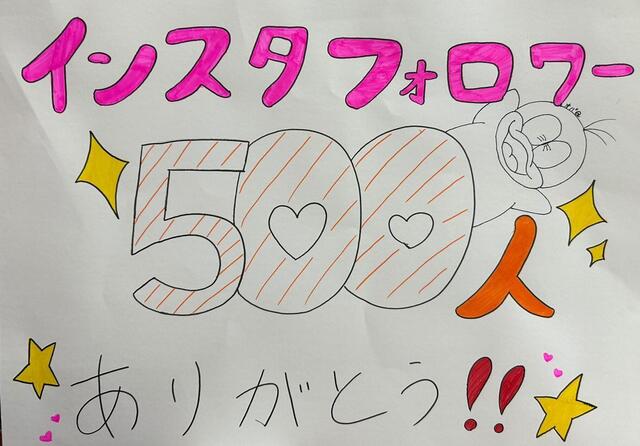 インスタフォロワー
500人
ありがとう!!